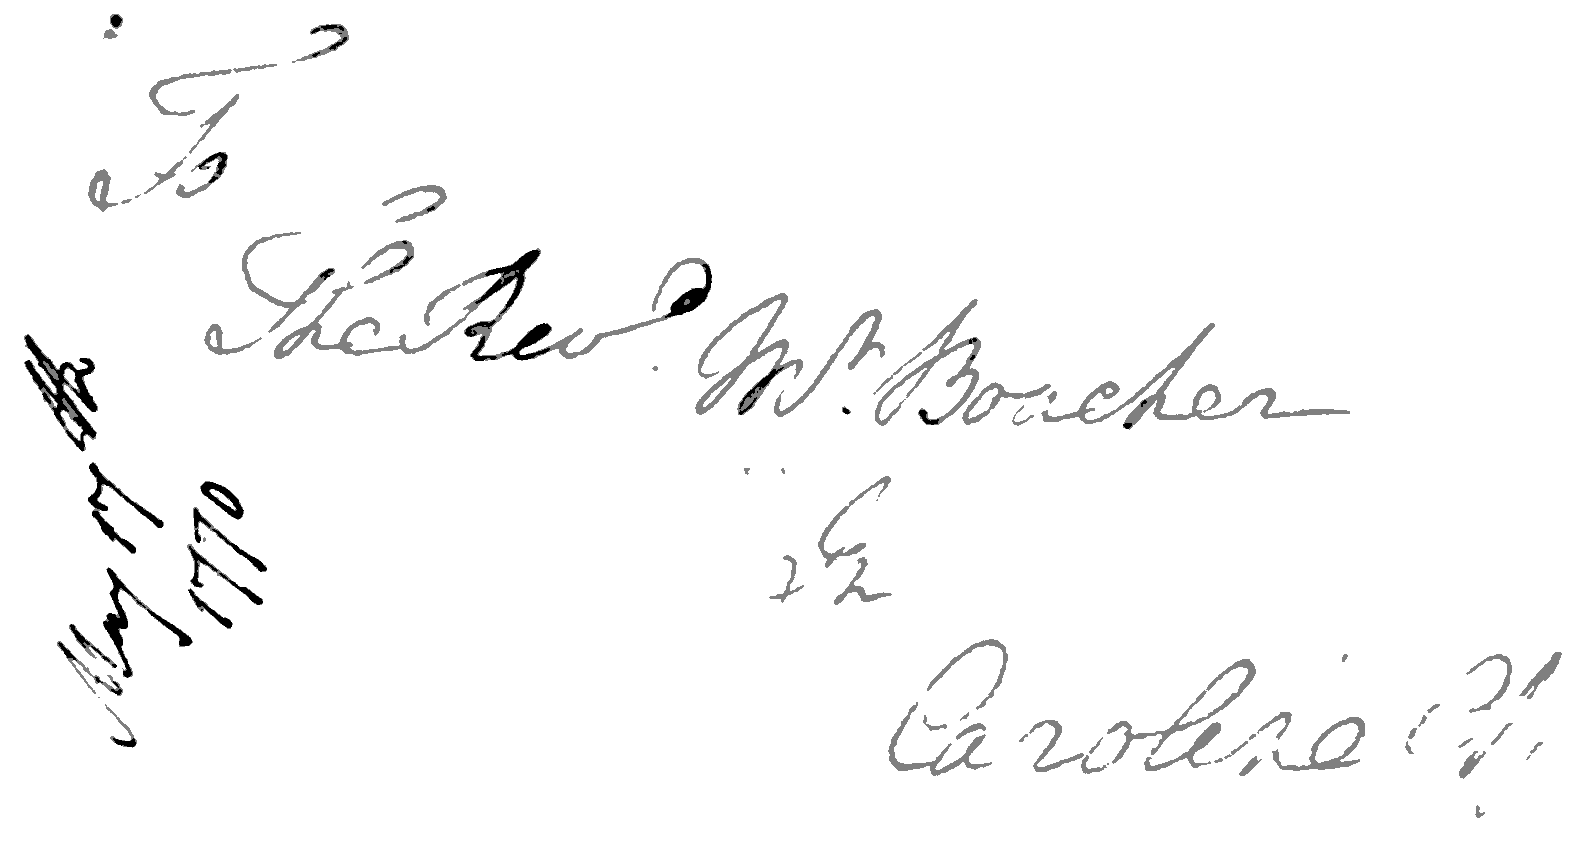 To
The Revd. Mr. Boucher
In
Caroline Cy.
May 17th
1770